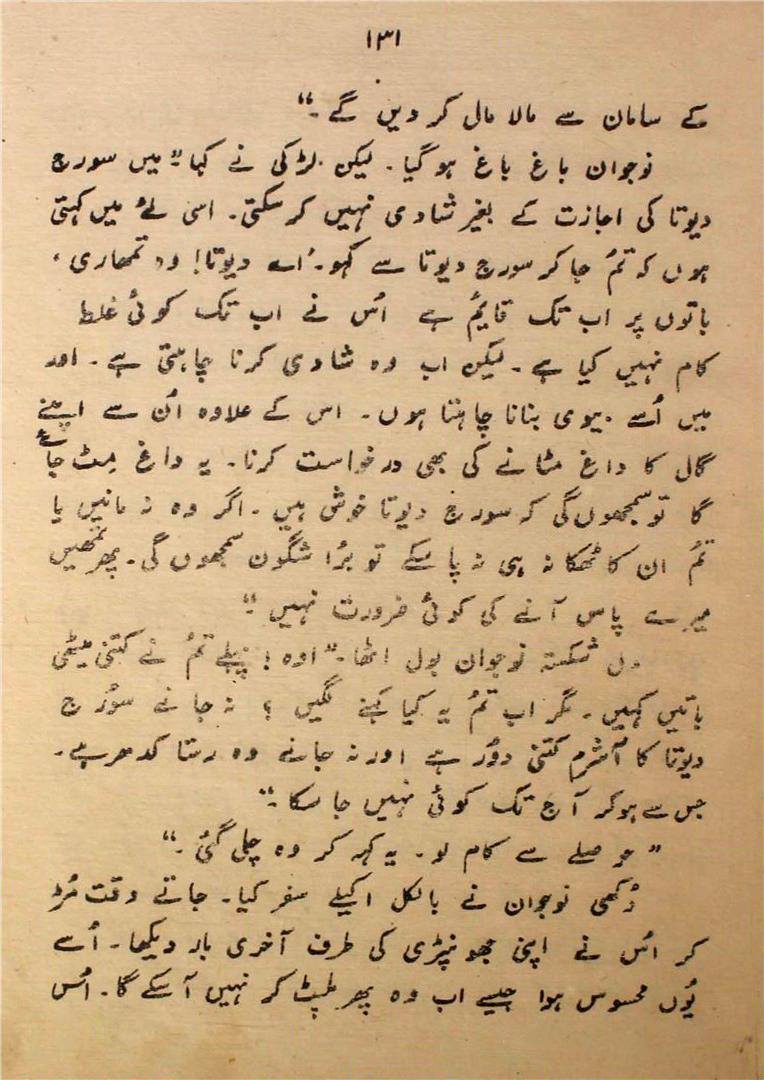 ۱۳۱
کے سامان سے مالا مال کر دیں گے۔“
نوجوان باغ باغ ہو گیا۔ لیکن لڑکی نے کہا ”میں سورج
دیوتا کی اجازت کے بغیر شادی نہیں کر سکتی۔ اسی لئے میں کہتی
ہوں کہ تمُ جا کر سورج دیوتا سے کہو۔ ’اے دیوتا! وہ تمھاری
باتوں پر اب تک قایمُ ہے اُس نے اب تک کوئی غلط
کام نہیں کیا ہے۔ لیکن اب وہ شادی کرنا چاہتی ہے۔ اور
میں اُسے بیوی بنانا چاہتا ہوں۔ اس کے علاوہ اُن سے اپنے
گال کا داغ مٹانے کی بھی درخواست کرنا۔ یہ داغ مِٹ جائے
گا تو سمجھوں گی کہ سورج دیوتا خوش ہیں۔ اگر وہ نہ مانیں یا
تمُ ان کا ٹھکانہ ہی نہ پا سکے تو برُا شگون سمجھوں گی۔ پھر تمھیں
میرے پاس آنے کی کوئی ضرورت نہیں“
دل شکستہ نوجوان بول اٹھا۔ ”اوہ! پہلے تمُ نے کتنی میٹھی
باتیں کہیں۔ مگر اب تمُ یہ کیا کہنے لگیں ؟ نہ جانے سوُرج
دیوتا کا آشرم کتنی دوُر ہے اور نہ جانے وہ رستا کدھر ہے۔
جس سے ہو کر آج تک کوئی نہیں جا سکا۔“
”حوصلے سے کام لو۔ یہ کہہ کر وہ چلی گئی۔“
دُکھی نوجوان نے بالکل اکیلے سفر کیا۔ جاتے وقت مُڑ
کر اُس نے اپنی جھونپڑی کی طرف آخری بار دیکھا۔ اُسے
یوُں محسوس ہوا جیسے اب وہ پھر پلٹ کر نہیں آ سکے گا۔ اُس